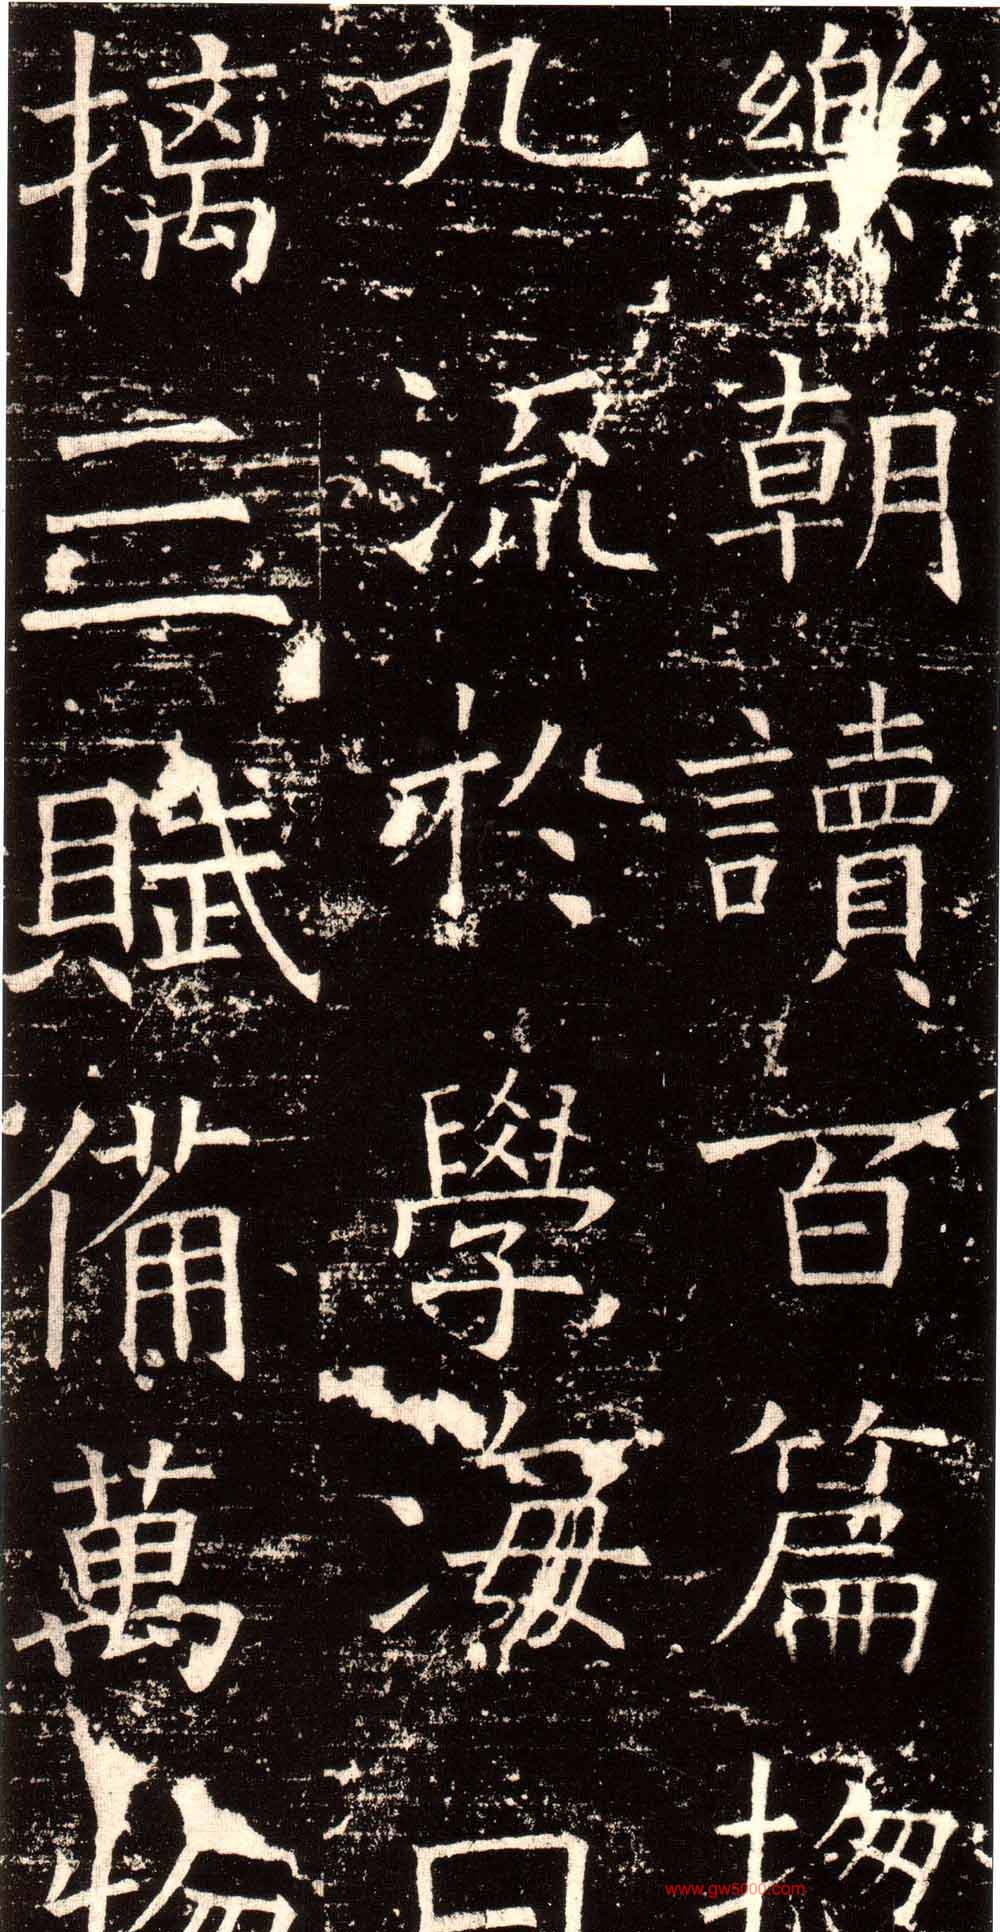 樂朝讀百篇
九流於學海日
摛三賦備萬物
www.gw5000.com